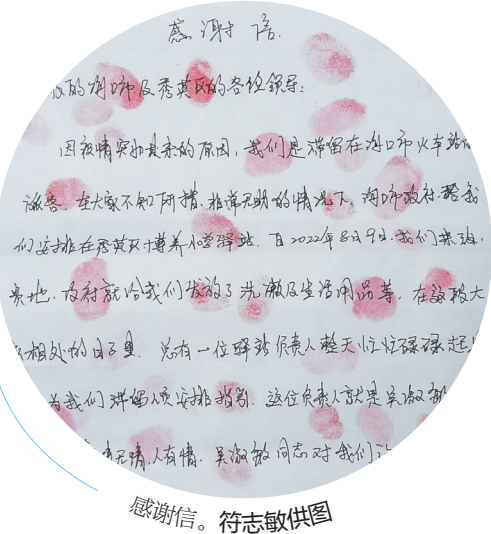 感谢信
的海口市及秀英区的各位领导：
因疫情突如其来的原因，我们是滞留在海口市火车站的
旅客。在大家不知所措，非常无助的情况下，海口市政府给我
们安排在秀英区博养小学驿站。自2022年8月9日，我们来
贵地，政府就给我们发放了洗漱及生活用品等，在这段大
相处的日子里，总有一位驿站负责人整天忙忙碌碌起
为我们滞留人员安排，这位负责人就是吴淑敏
无情，人有情，吴淑敏同志对我们
感谢信。符志敏供图